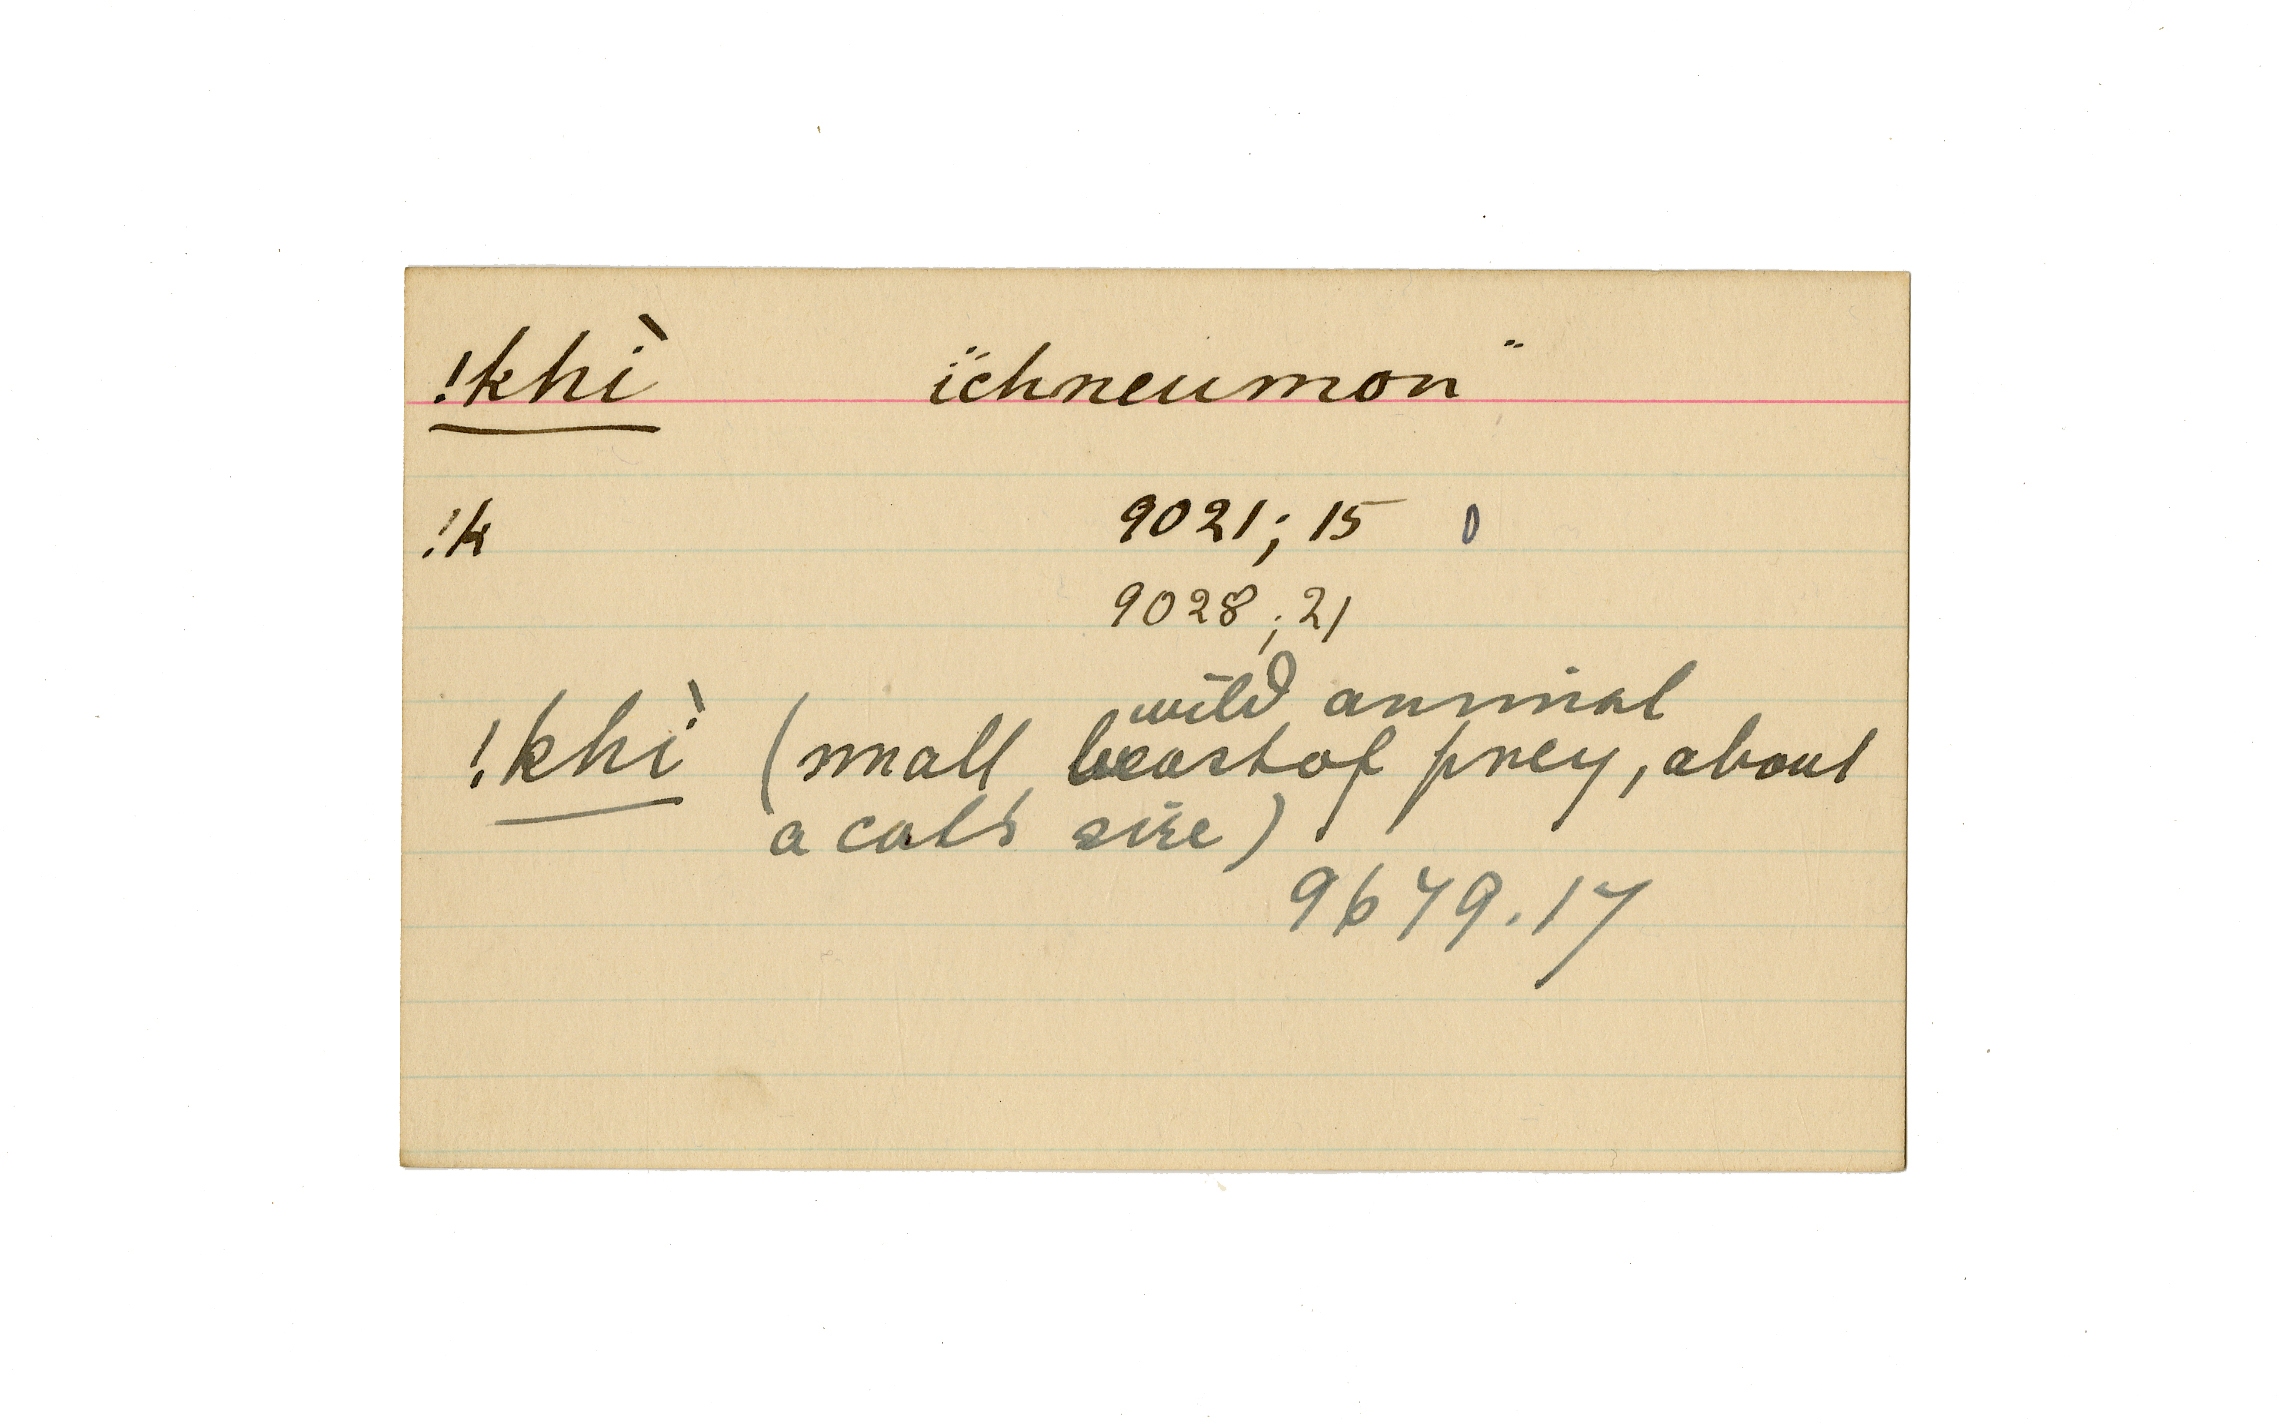 !khì "ichneumon"
!k 9021; 15 0
9028; 21
wild animal
!khì (small beast of prey, about
a cat's size)
9679.17